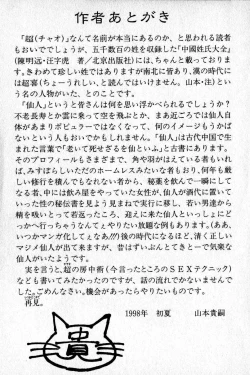 作者あとがき
「超(チャオ)」なんて名前が本当にあるのか、と思われる読者
もおいででしょうが、五千数百の姓を収録した「中國姓氏大全」
(陳明远・汪宇虎 著/北京出版社)には、ちゃんと載っておりま
す。きわめて珍しい姓ではありますが南北に皆あり、漢の時代に
は超喜(ちょーうれしい、と読んではいけません。山本・注)とい
う名の人物がいた、とのことです。
「仙人」というと皆さんは何を思い浮かべられるでしょうか?
不老長寿とか雲に乗って空を飛ぶとか、まあ近ごろでは仙人自
体があまりポピュラーではなくなって、何のイメージもうかば
ないという人もおいでかもしれません。「仙人」は古代中国で生
まれた言葉で「老いて死せざるを仙といふ」と古書にあります。
そのプロフィールもさまざまで、角や羽がはえている者もいれ
ば、みすぼらしいただのホームレスみたいな者もおり、何年も厳
しい修行を積んでもなれない者から、秘薬を飲んで一瞬にして
なる者、中には飲み屋をやっていた女性が、仙人が酒代に置いて
いった性の秘伝書を見よう見まねで実行に移し、若い男達から
精を吸いとって若返ったころ、迎えに来た仙人といっしょにど
っかへ行っちゃうなんてェやりたい放題な例もあります。(ああ、
いつかマンガ化してェなあ!!)後の時代になるほど、清く正しい
マジメ仙人が出て来ますが、昔はずいぶんとてきとーで気楽な
仙人がいたようです。
実を言うと、超の房中術(今言ったところのSEXテクニック)
なども書いてみたかったのですが、話の流れでかないませんで
した。ごめんなさい。機会があったらやりたいものです。
再見。
1998年 初夏 山本貴嗣
貴